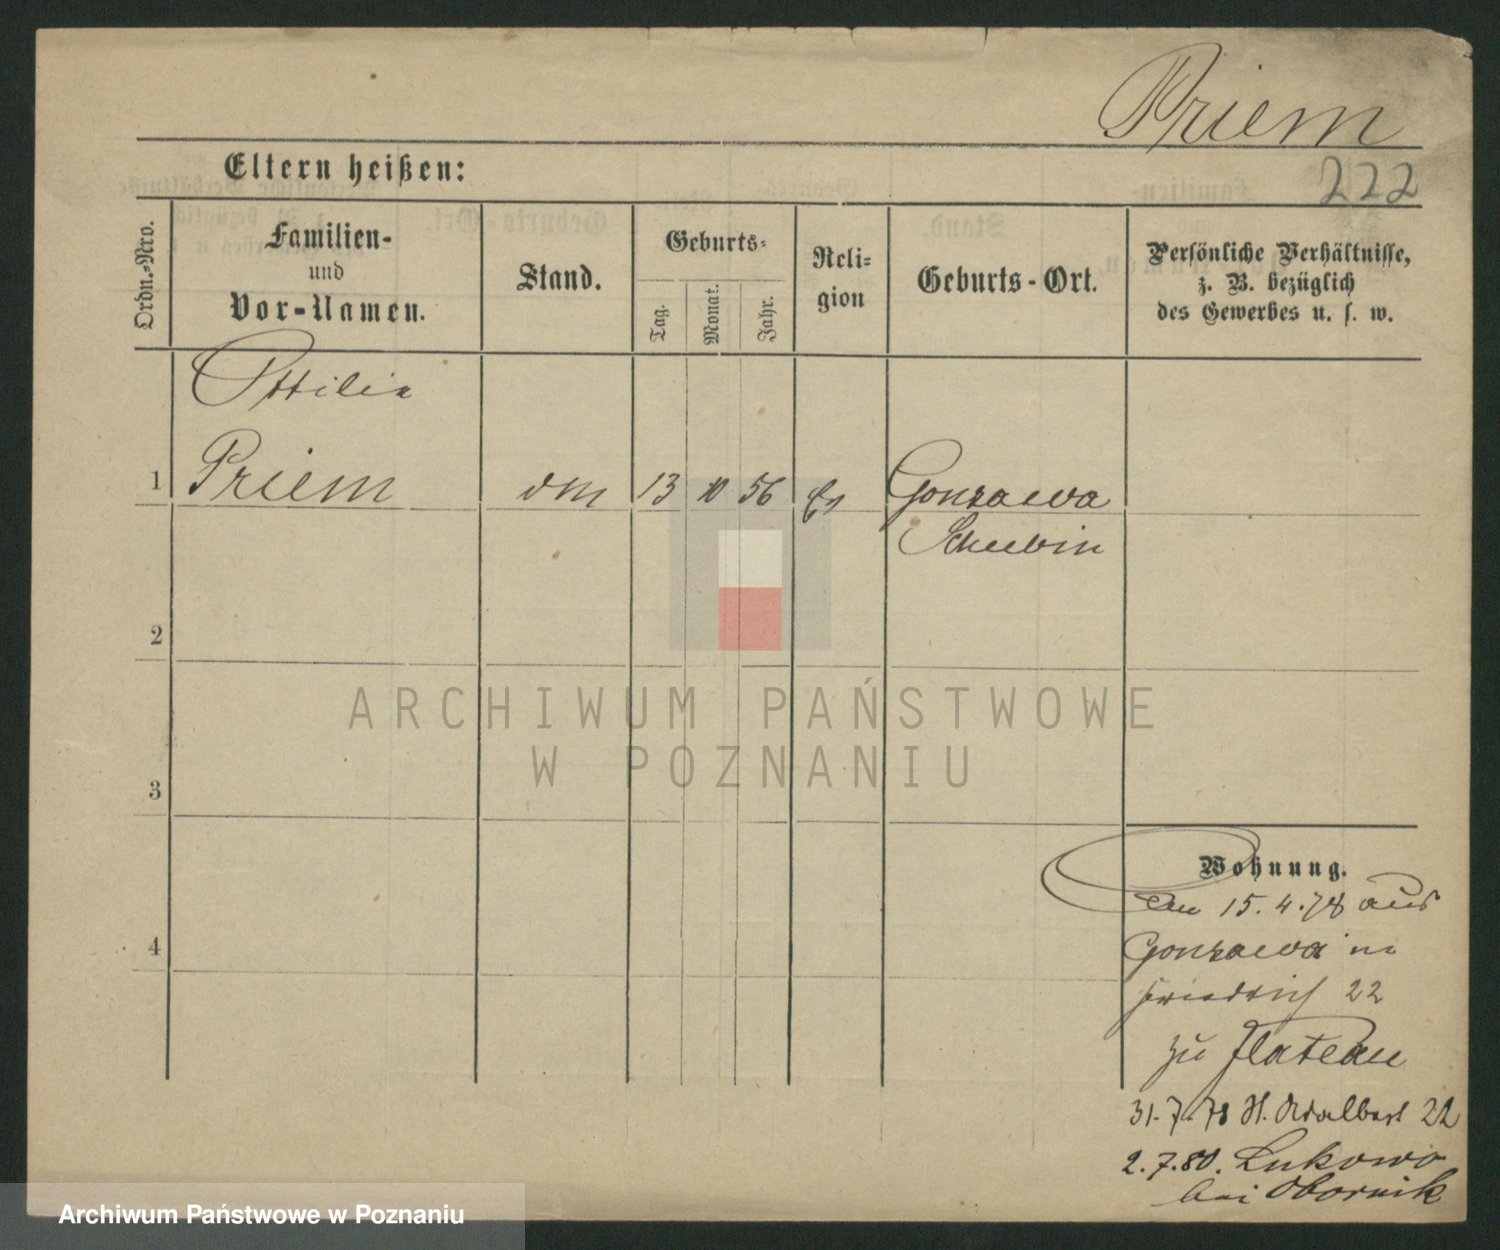 Priem
222
Eltern heißen:
Ordn.-Nro.
Familien-
und
Vor-Namen.
Stand.
Geburts-
Tag.
Monat.
Jahr.
Reli-
gion
Geburts-Ort.
Persönliche Verhältnisse,
z. B. bezüglich
des Gewerbes u. s. w.
Ottilie
1 Priem 13 10 56 Ev Gonzawa
Schubin
2
3
4
ARCHIWUM PAŃSTWOWE
W POZNANIU
Wohnung.
15.4.78 aus
Gonzawa in
Friedrich 22
zu Flatau
31.7.78 St. Adalbert 22
2.7.80. Lukowo
bei Obornik
Archiwum Państwowe w Poznaniu